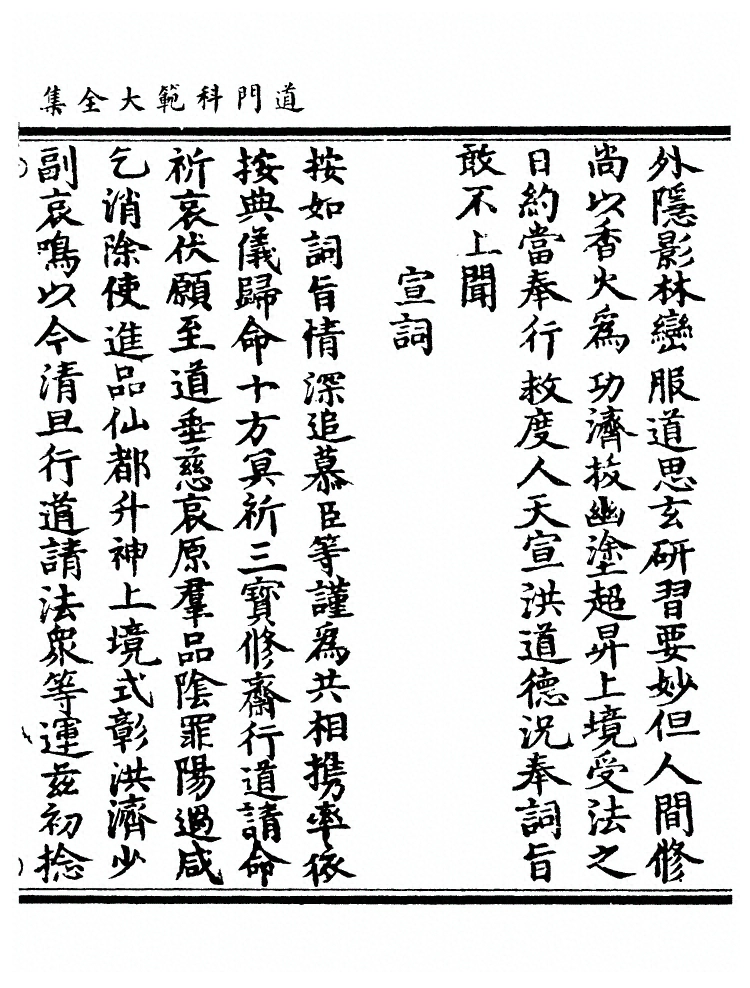 道門科範大全集
外隱影林巒服道思玄研習要妙但人間修
尚以香火爲功濟拔幽塗超昇上境受法之
日約當奉行救度人天宣洪道德况奉詞旨
敢不上聞
宣詞
按如詞旨情深追慕臣等謹爲共相携率依
按典儀歸命十方冥祈三寶修齋行道請命
祈哀伏願至道垂慈哀原羣品陰罪陽過咸
乞消除使進品仙都升神上境式彰洪濟少
副哀鳴以今清旦行道請法衆等運茲初捻